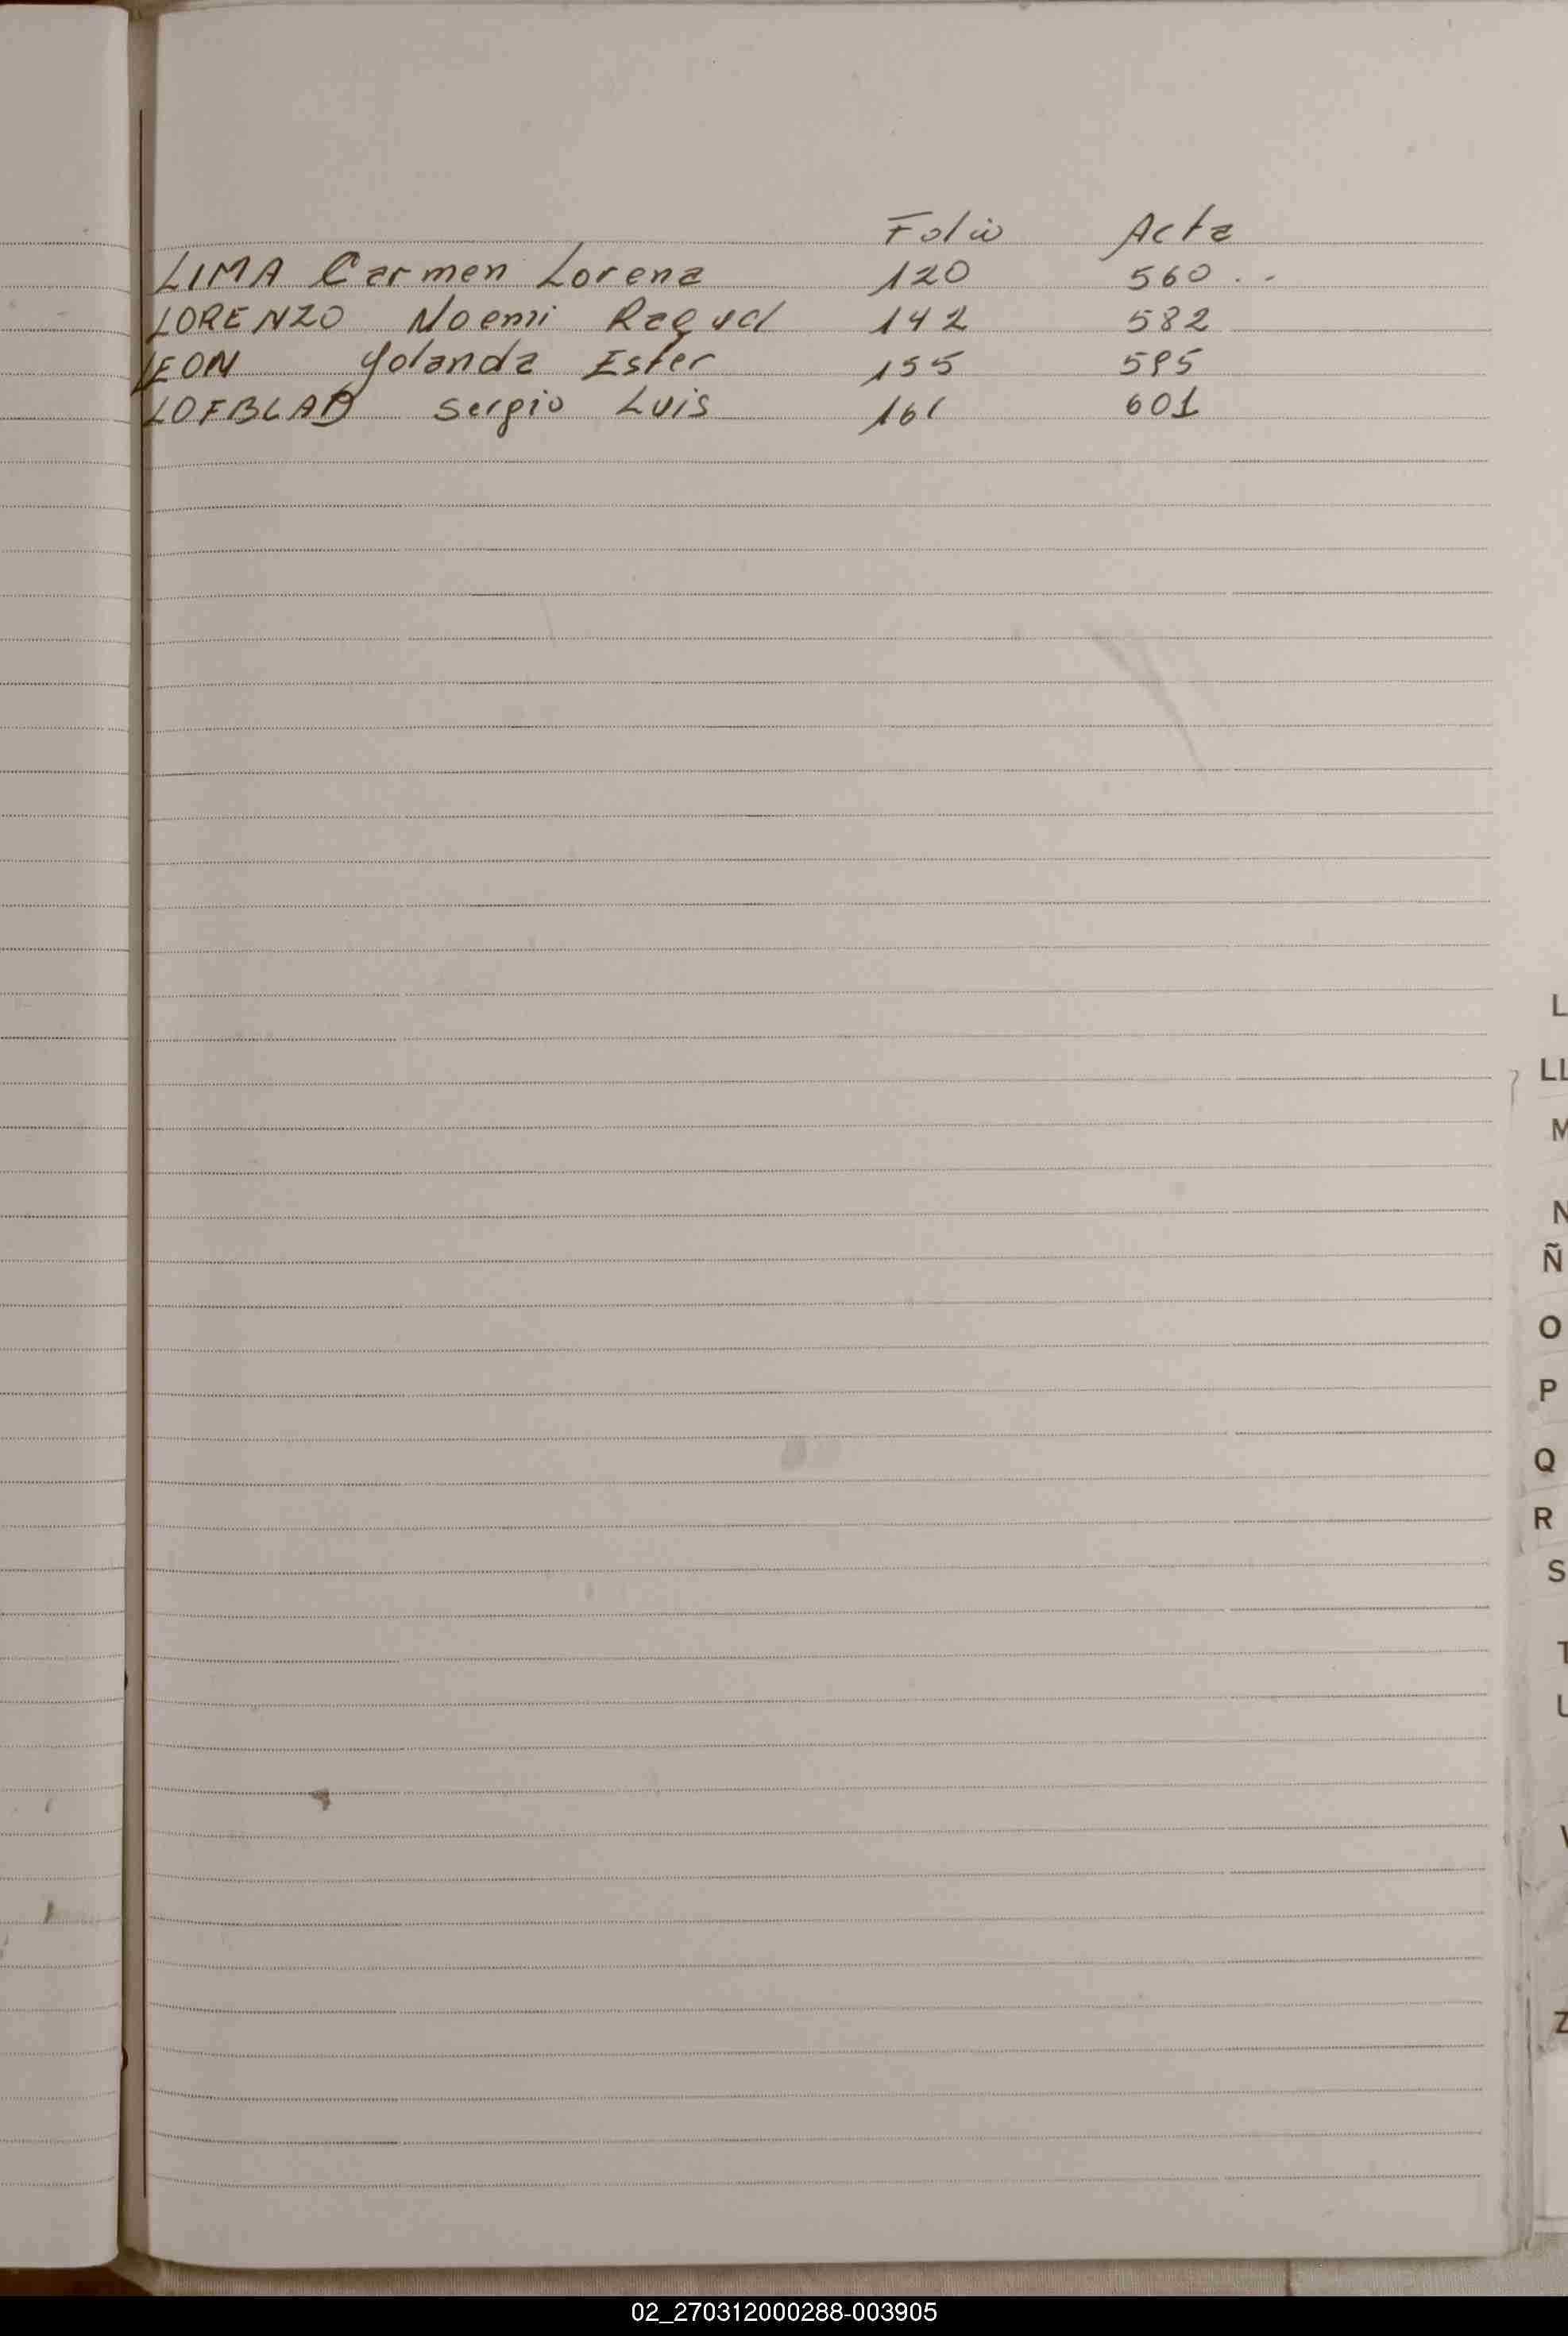 Folio Acta
LIMA Carmen Lorena 120 560 . .
LORENZO Noemi Raquel 142 582
LEON Yolanda Ester 155 595
LOFBLAD Sergio Luis 161 601
L
LL
M
N
Ñ
O
P
Q
R
S
T
U
V
Z
02_270312000288-003905